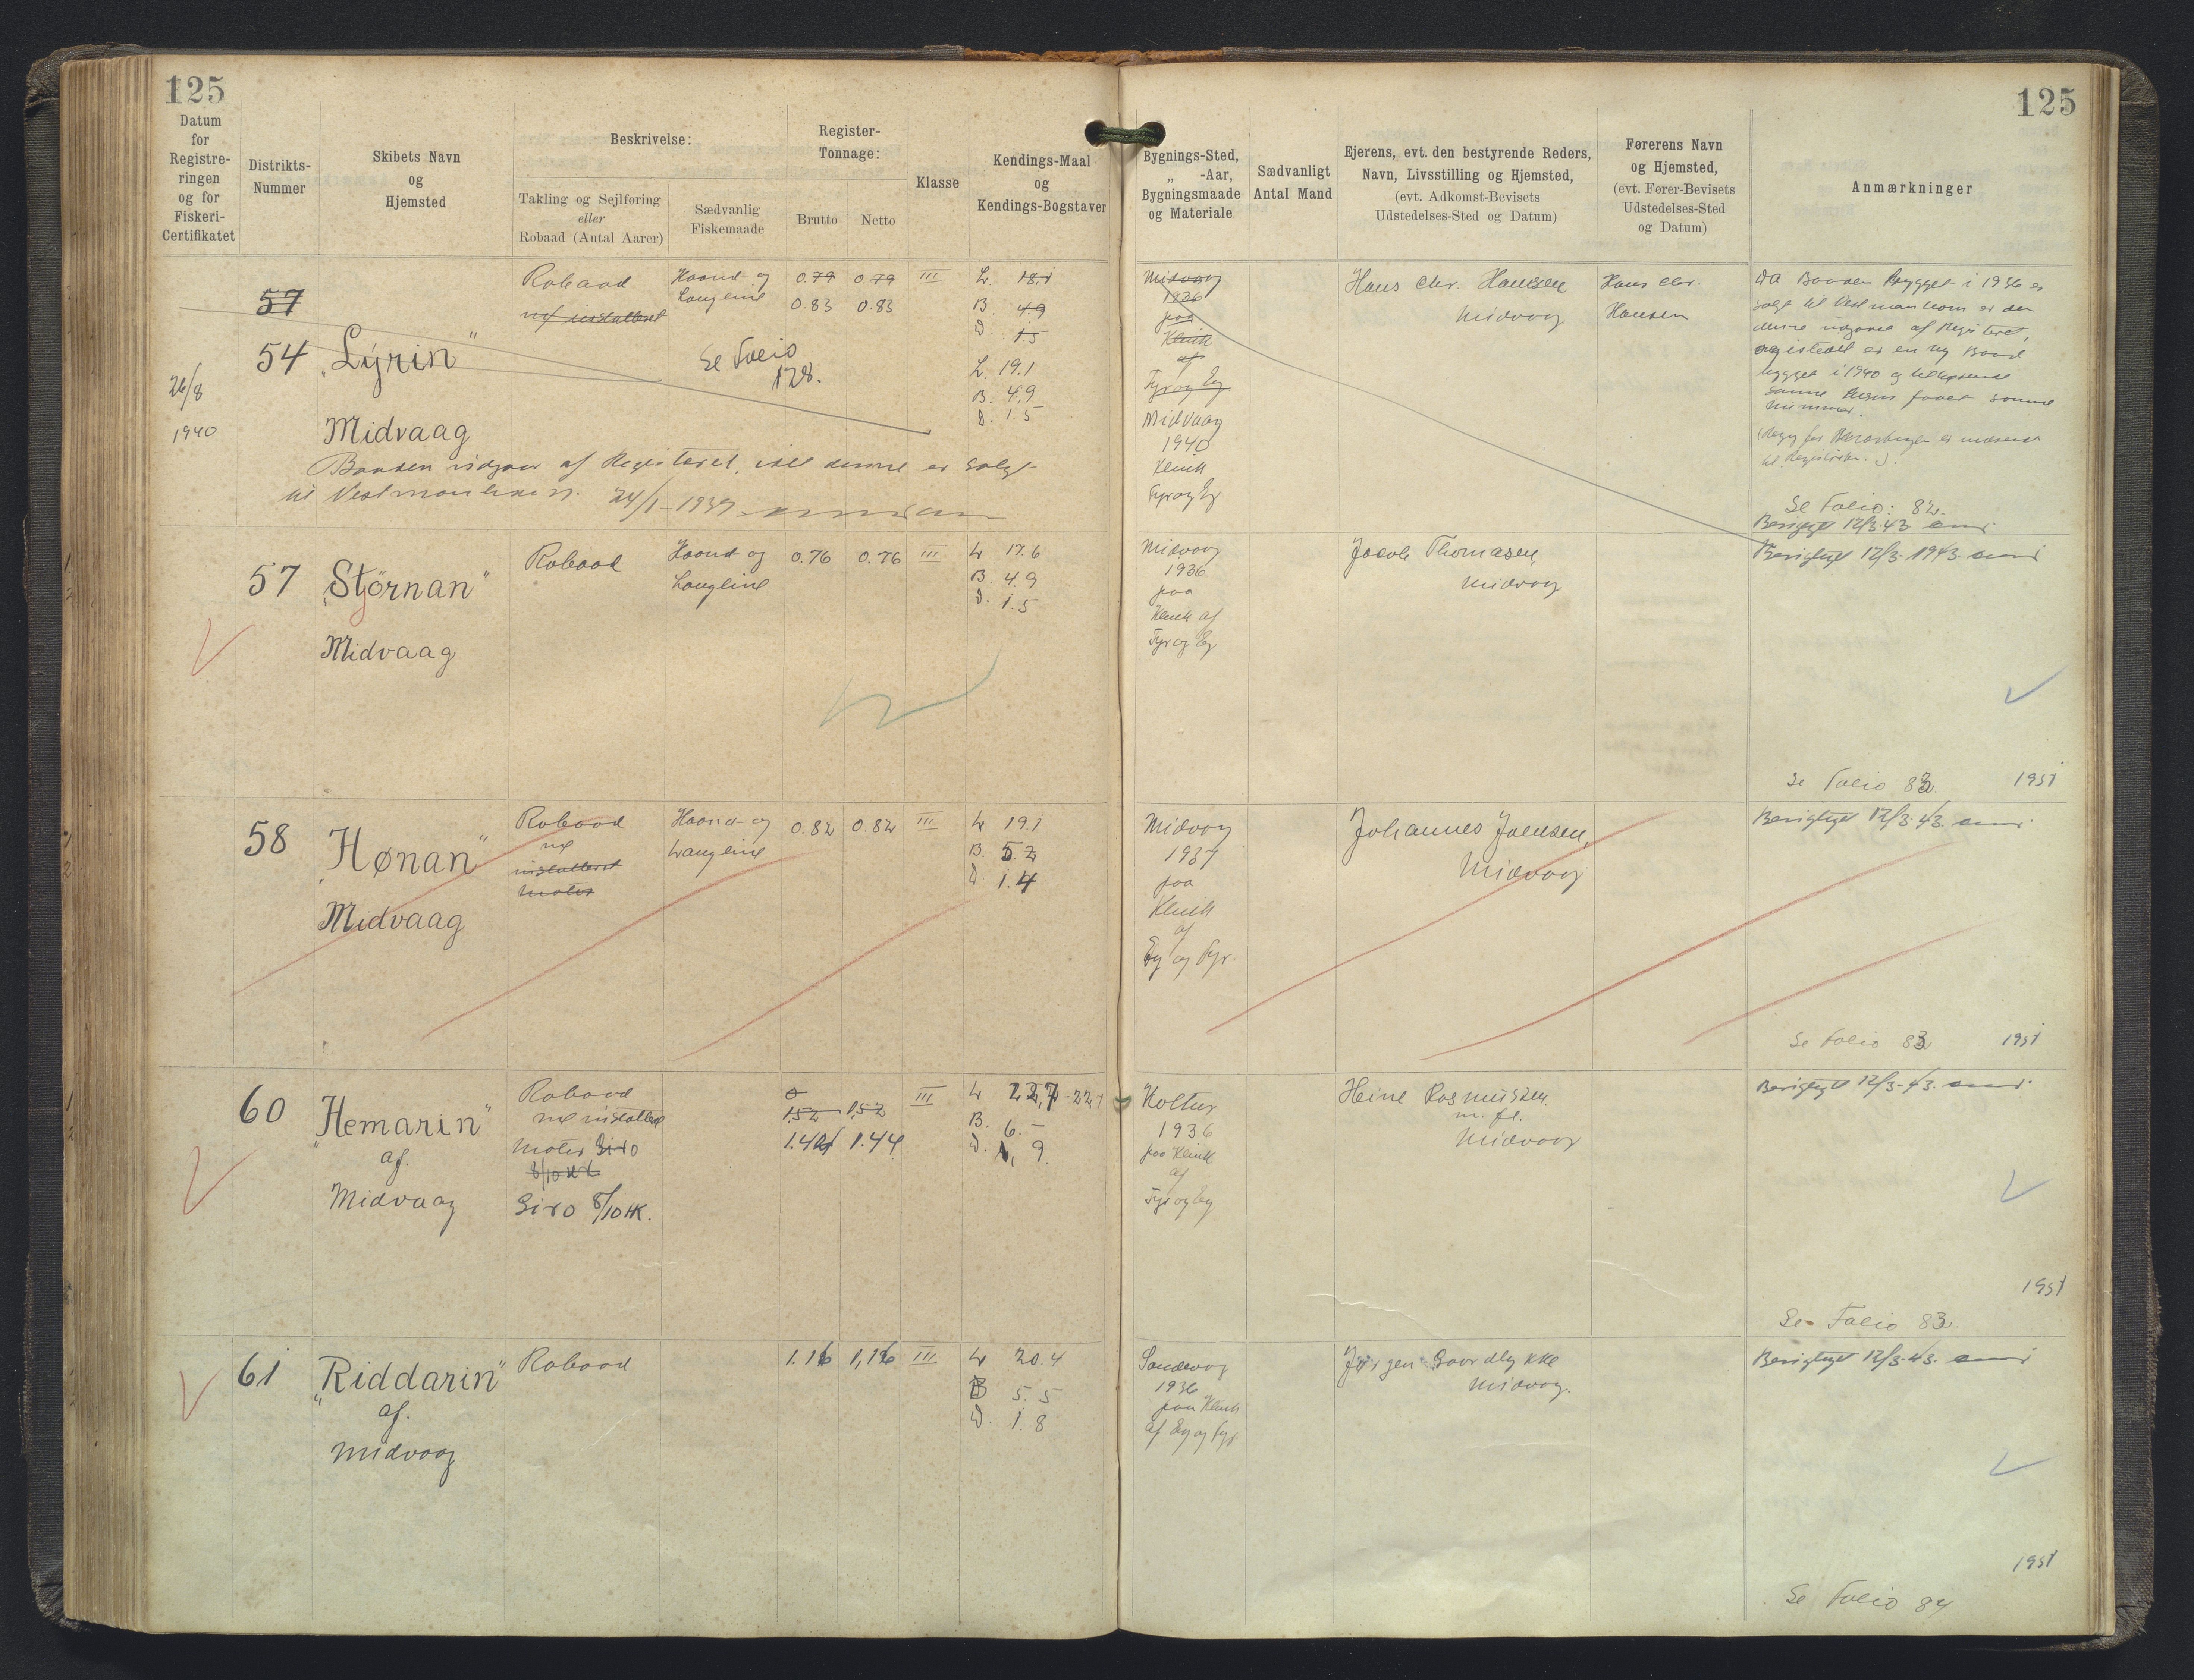 125
125
Datum
for
Registre-
ringen
og for
Fiskeri-
Certifikatet
Distrikts-
Nummer
Skibets Navn
og
Hjemsted
Beskrivelse:
Takling og Sejlføring
eller
Robaad (Antal Aarer)
Sædvanlig
Fiskemaade
Register-
Tonnage:
Brutto
Netto
Klasse
Kendings-Maal
og
Kendings-Bogstaver
Bygnings-Sted,
„ -Aar,
Bygningsmaade
og Materiale
Sædvanligt
Antal Mand
Ejerens, evt. den bestyrende Reders,
Navn, Livsstilling og Hjemsted,
(evt. Adkomst-Bevisets
Udstedelses-Sted og Datum)
Førerens Navn
og Hjemsted,
(evt. Fører-Bevisets
Udstedelses-Sted
og Datum)
Anmærkninger
57
54
26/8
1940
„Lýrin“
Midvaag
Robaad
Haand- og
Langline
Se Folio
128.
0.79 0.79 III
0.83 0.83
L. 18.1
B 4.9
D. 1.5
L. 19.1
B. 4.9
D. 1.5
Baaden udgaar af Registeret, idet denne er solgt
til Vestmanhavn. 24/1-1939
Midvaag
1936
paa
Klink
af
Fyr og Eg
Midvaag
1940
Klink
Fyr og Eg
Hans Chr. Hansen
Midvaag
Hans Chr.
Hansen
Da Baaden bygget i 1936 er
solgt til Vestmanhavn er den
denne udgaaet af Registeret,
registeret er en ny Baad
bygget i 1940 og tilhørende
samme Person faaet samme
Nummer.
Se Folio: 82.
Berigtiget 12/3.43.
57
„Stjørnan“
Midvaag
Robaad
Haand og
Langline
0.76 0.76 III
L 17.6
B. 4.9
D. 1.5
Midvaag
1936
paa
Klink af
Fyr og Eg
Jacob Thomasen
Midvaag
Berigtiget 12/3.1943.
Se Folio 83.
1951
58
„Hønan“
Midvaag
Robaad
med
installeret
Motor
Haand- og
Langline
0.82 0.82 III
L 19.1
B. 5.2
D 1.4
Midvaag
1937
paa
Klink
af
Eg og Fyr.
Johannes Joensen,
Midvaag
Berigtiget 12/3.43.
Se Folio 83
1951
60
„Hemarin“
af.
Midvaag
Robaad
med installeret
Motor Siro
8/10 HK
Siro 8/10 HK.
1.52 1.52 III
1.44 1.44
L 22,7-22,1
B. 6.-
D. 1, 9.
Koltur
1936
paa Klink
af
Fyr og Eg
Heine Rasmussen.
m. fl.
Midvaag
Berigtiget 12/3-43.
1951
Se Folio 83.
61
„Riddarin“
af.
Midvaag
Robaad
1.16 1,16 III
L 20.4
B 5.5
D. 1.8
Sandevaag
1936
paa Klink
af Eg og Fyr
Jørgen Gaardlykke
Midvaag.
Berigtiget 12/3.43.
1951
Se Folio 84